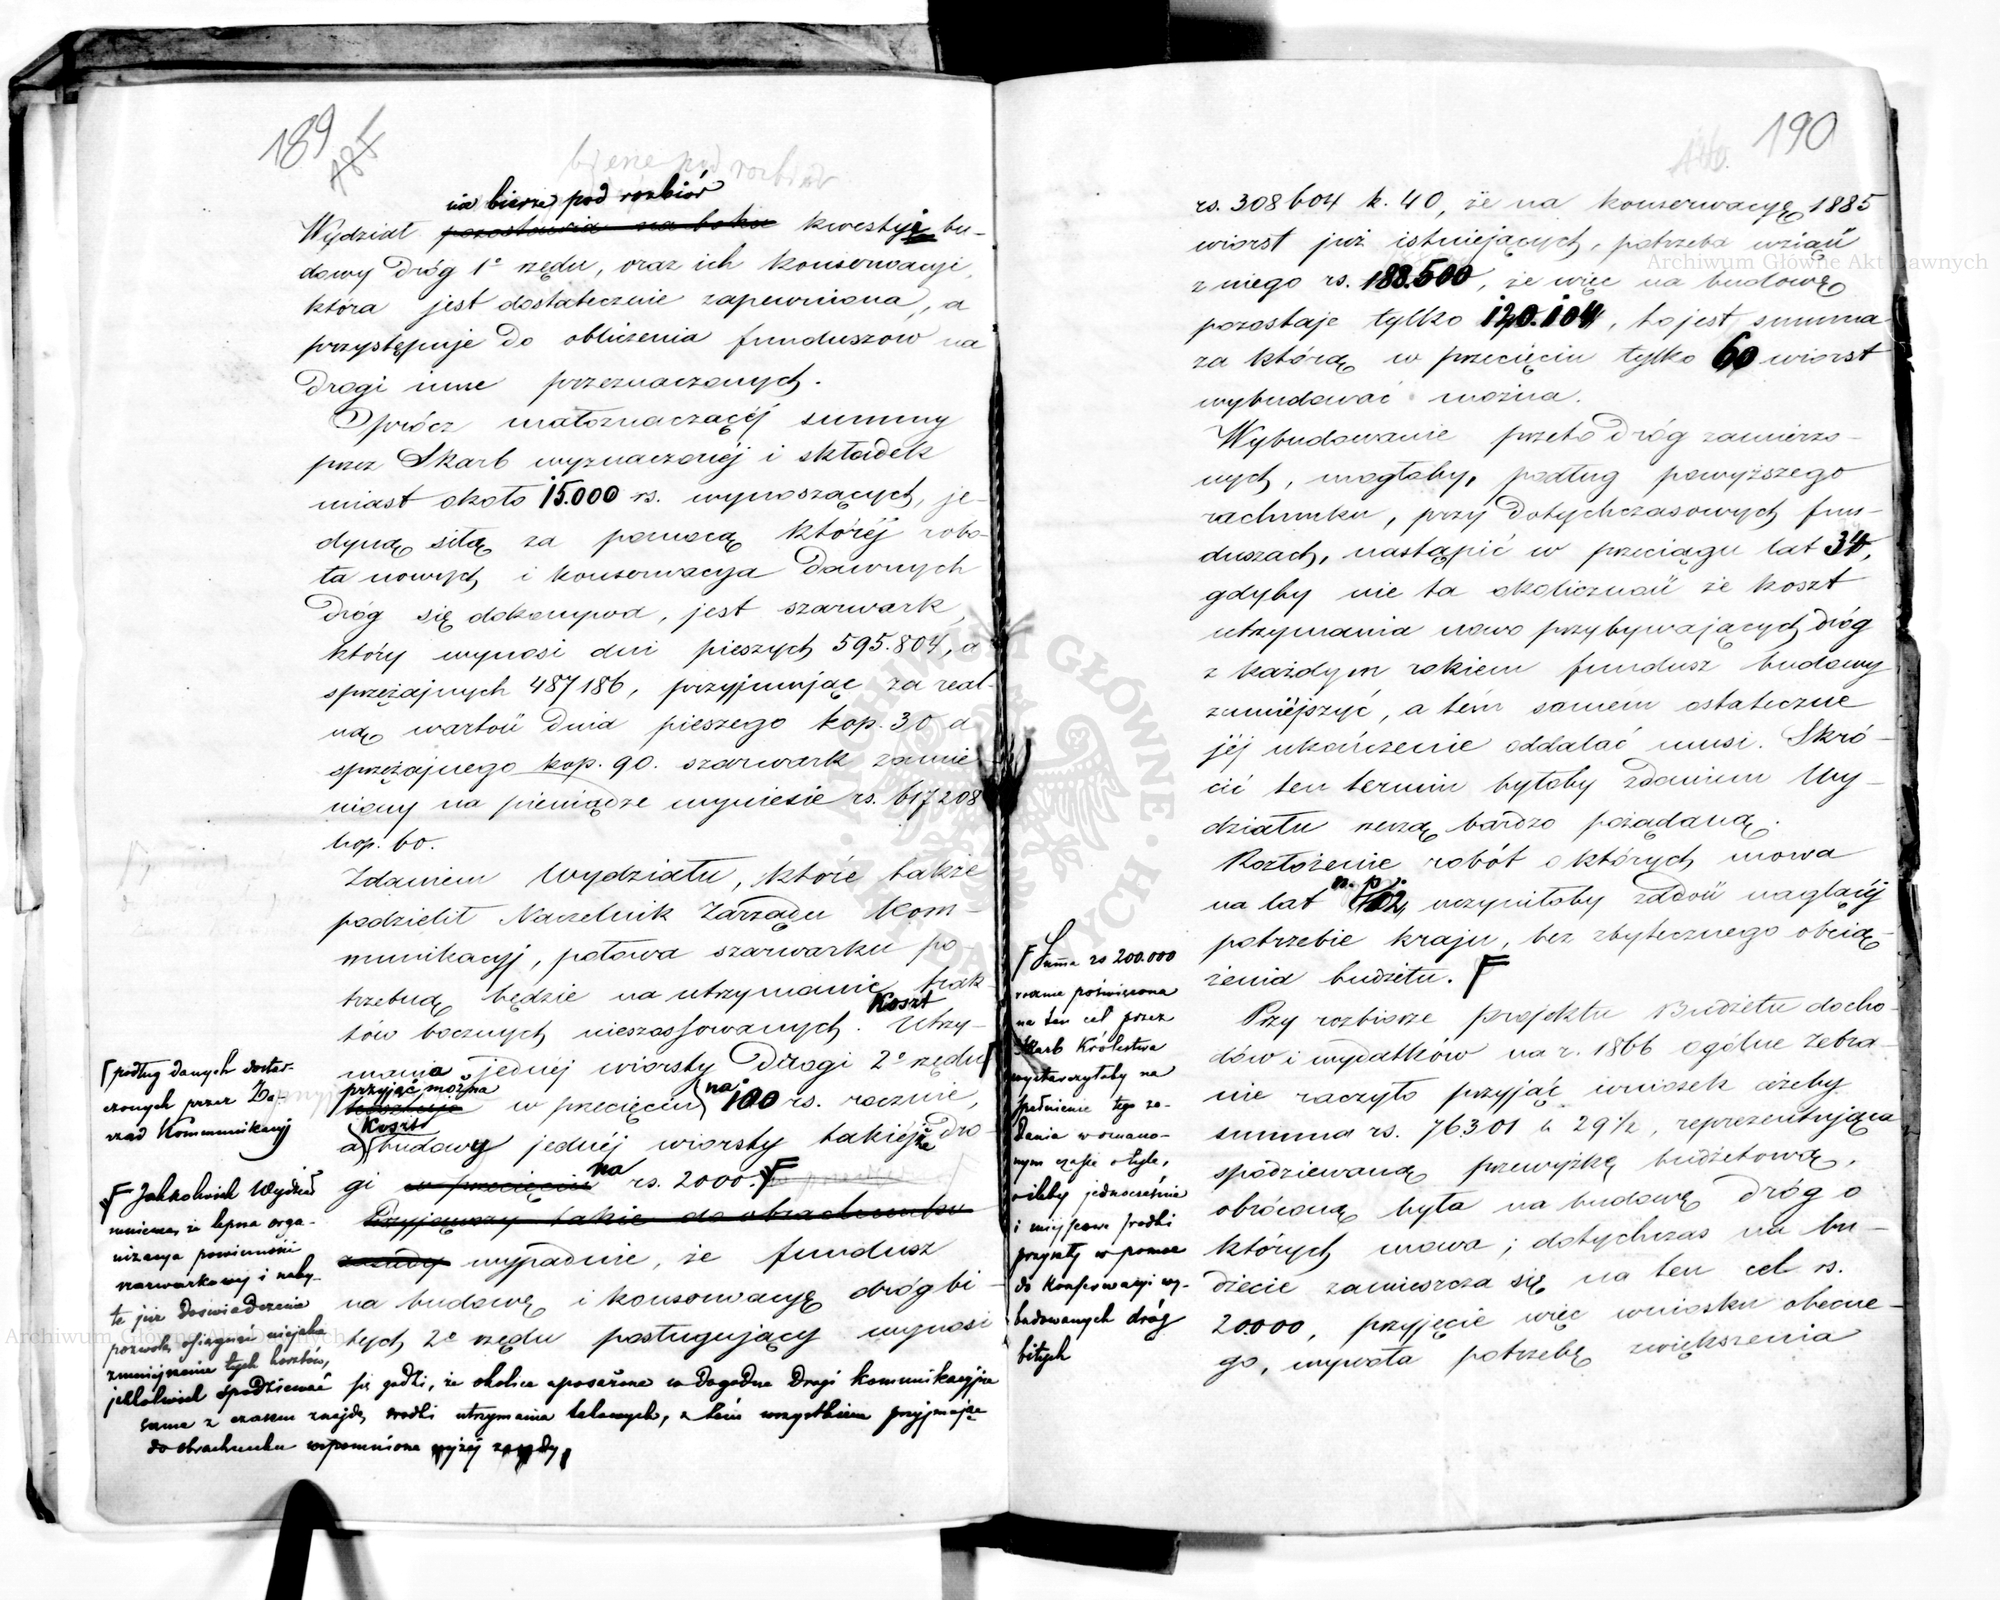 189
nie bierze pod rozbiór
Wydział pozostawia na boku kwestyi bu-
dowy dróg 1º rzędu, oraz ich konserwacyi,
która jest dostatecznie zapewniona, a
przystępuje do obliczenia funduszów na
drogi inne przeznaczonych.
Oprócz małoznaczącéj summy
przez Skarb wyznaczonéj i składek
miast około 15.000 rs. wynoszących, je-
dyną siłą za pomocą któréj robo-
ta nowych i konserwacya dawnych
dróg się dokonywa, jest szarwark,
który wynosi dni pieszych 595.804, a
sprzężajnych 487186, przyjmując za real-
ną wartość dnia pieszego kop. 30 a
sprzężajnego kop. 90. szarwark zamie-
niony na pieniądze wyniesie rs. 617208
kop. 60.
Zdaniem Wydziału, które także
podzielił Naczelnik Zarządu Kom-
munikacyj, połowa szarwarku po-
trzebną będzie na utrzymanie trak-
tów bocznych nieszossowanych. Koszt Utrzy-
mania jednéj wiorsty Drogi 2º rzędu
przyjąć można
kosztuje w przecięciu na 100 rs. rocznie,
a Koszt budowy jednéj wiorsty takiéjże dro-
gi w przecięciu na rs. 2000.
Przyjąwszy takie do obrachunku
zasady wypadnie, że fundusz
na budowę i konserwacyę dróg bi-
tych 2º rzędu posługujący wynosi
podług danych dostar-
czonych przez Za-
rząd Kommunikacyj
Jakkolwiek Wydział
mniema, że lepsza orga-
nizacya powinności
szarwarkowej i naby-
te już doświadczenie
pozwolą osiągnąć niejakie
zmniejszenie tych kosztów,
jakkolwiek spodziewać się godzi, że okolice uposażone w dogodne drogi komunikacyjne
same z czasem znajdą środki utrzymania takowych, z tém wszystkiem przyjmując
do obrachunku wspomnione wyżéj zasady,
190
rs. 308604 k. 40, że na konserwacyę 1885
wiorst już istniejących, potrzeba wziąć
z niego rs. 188.500, że więc na budowę
pozostaje tylko 120.104, to jest summa
za którą w przecięciu tylko 60 wiorst
wybudować można.
Wybudowanie przeto dróg zamierzo-
nych, mogłoby, podług powyższego
rachunku, przy dotychczasowych fun-
duszach, nastąpić w przeciągu lat 34,
gdyby nie ta okoliczność że koszt
utrzymania nowo przybywających dróg
z każdym rokiem fundusz budowy
zmniéjszyć, a tém samém ostateczne
jéj ukończenie oddalać musi. Skró-
cić ten termin byłoby zdaniem Wy-
działu rzeczą bardzo pożądaną.
Rozłożenie robót o których mowa
na lat n. p. 12, uczyniłoby zadość nagłéj
potrzebie kraju, bez zbytecznego obcią-
żenia budżetu.
Przy rozbiorze projektu Budżetu docho-
dów i wydatków na r. 1866 ogólne Zebra-
nie raczyło przyjąć wniosek ażeby
summa rs. 76301 k 29½, reprezentująca
spodziewaną przewyżkę budżetową,
obróconą była na budowę dróg o
których mowa; dotychczas na bu-
dżecie zamieszcza się na ten cel rs.
20.000, przyjęcie więc wniosku obecne-
go, wywoła potrzebę zwiększenia
Summa rs 200.000
rocznie poświęcona
na ten cel przez
Skarb Królestwa
wystarczyłaby na
spełnienie tego za-
dania w ozna czo-
nym czasie o tyle,
o ileby jednocześnie
i miejscowe środki
przyszły w pomoc
do konserwacyi wy-
budowanych dróg
bitych
Archiwum Główne Akt Dawnych
Archiwum Główne Akt Dawnych
ARCHIWUM GŁÓWNE AKT DAWNYCH